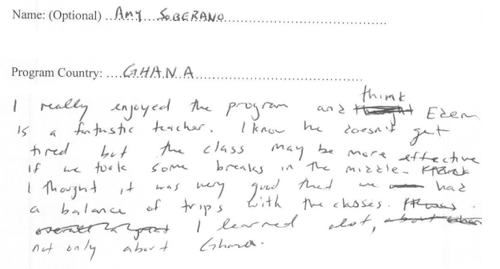 Name: (Optional) ..Amy Soberano
Program Country: ....GHANA
think
I really enjoyed the program and Ezem
is a fantastic teacher. I know he doesn't get
tired but the class may be more effective
if we took some breaks in the middle.
I thought it was very good that we had
a balance of trips with the classes.
I learned alot,
not only about Ghana.